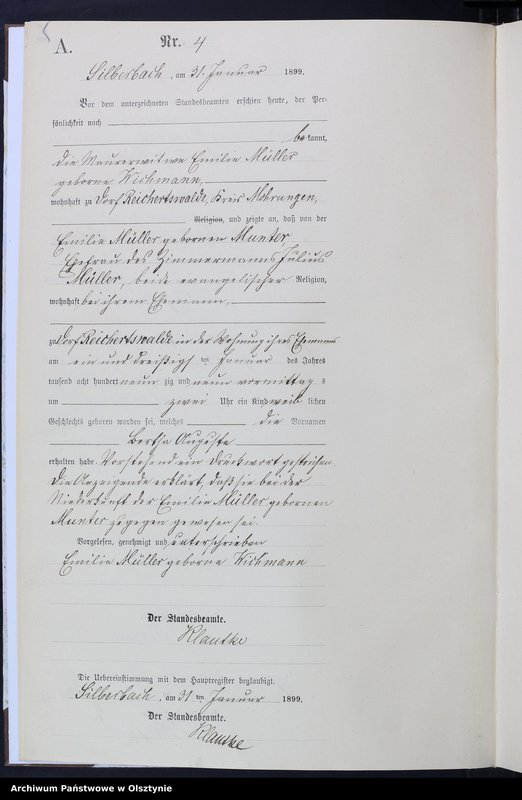 A.
Nr. 4
Silberbach, am 31. Januar 1899.
Vor dem unterzeichneten Standesbeamten erschien heute, der Per-
sönlichkeit nach
be kannt,
die Maurerwitwe Emilie Müller
geborne Wichmann,
wohnhaft zu Dorf Reichertswalde, Kreis Mohrungen,
Religion, und zeigte an, daß von der
Emilie Müller gebornen Munter,
Ehefrau des Zimmermanns Julius
Müller, beide evangelischer Religion,
wohnhaft bei ihrem Ehemann,
zu Dorf Reichertswalde in der Wohnung ihres Ehemanns
am ein und dreißigsten Januar des Jahres
tausend acht hundert neun zig und neun vormittags
um zwei Uhr ein Kind weib lichen
Geschlechts geboren worden sei, welches die Vornamen
Bertha Auguste
erhalten habe. Vorstehend ein Druckwort gestrichen.
Die Anzeigende erklärt, daß sie bei der
Niederkunft der Emilie Müller gebornen
Munter zugegen gewesen sei.
Vorgelesen, genehmigt und unterschrieben
Emilie Müller geborne Wichmann
Der Standesbeamte.
Klautke
Die Uebereinstimmung mit dem Hauptregister beglaubigt.
Silberbach, am 31 ten Januar 1899.
Der Standesbeamte.
Klautke
Archiwum Państwowe w Olsztynie